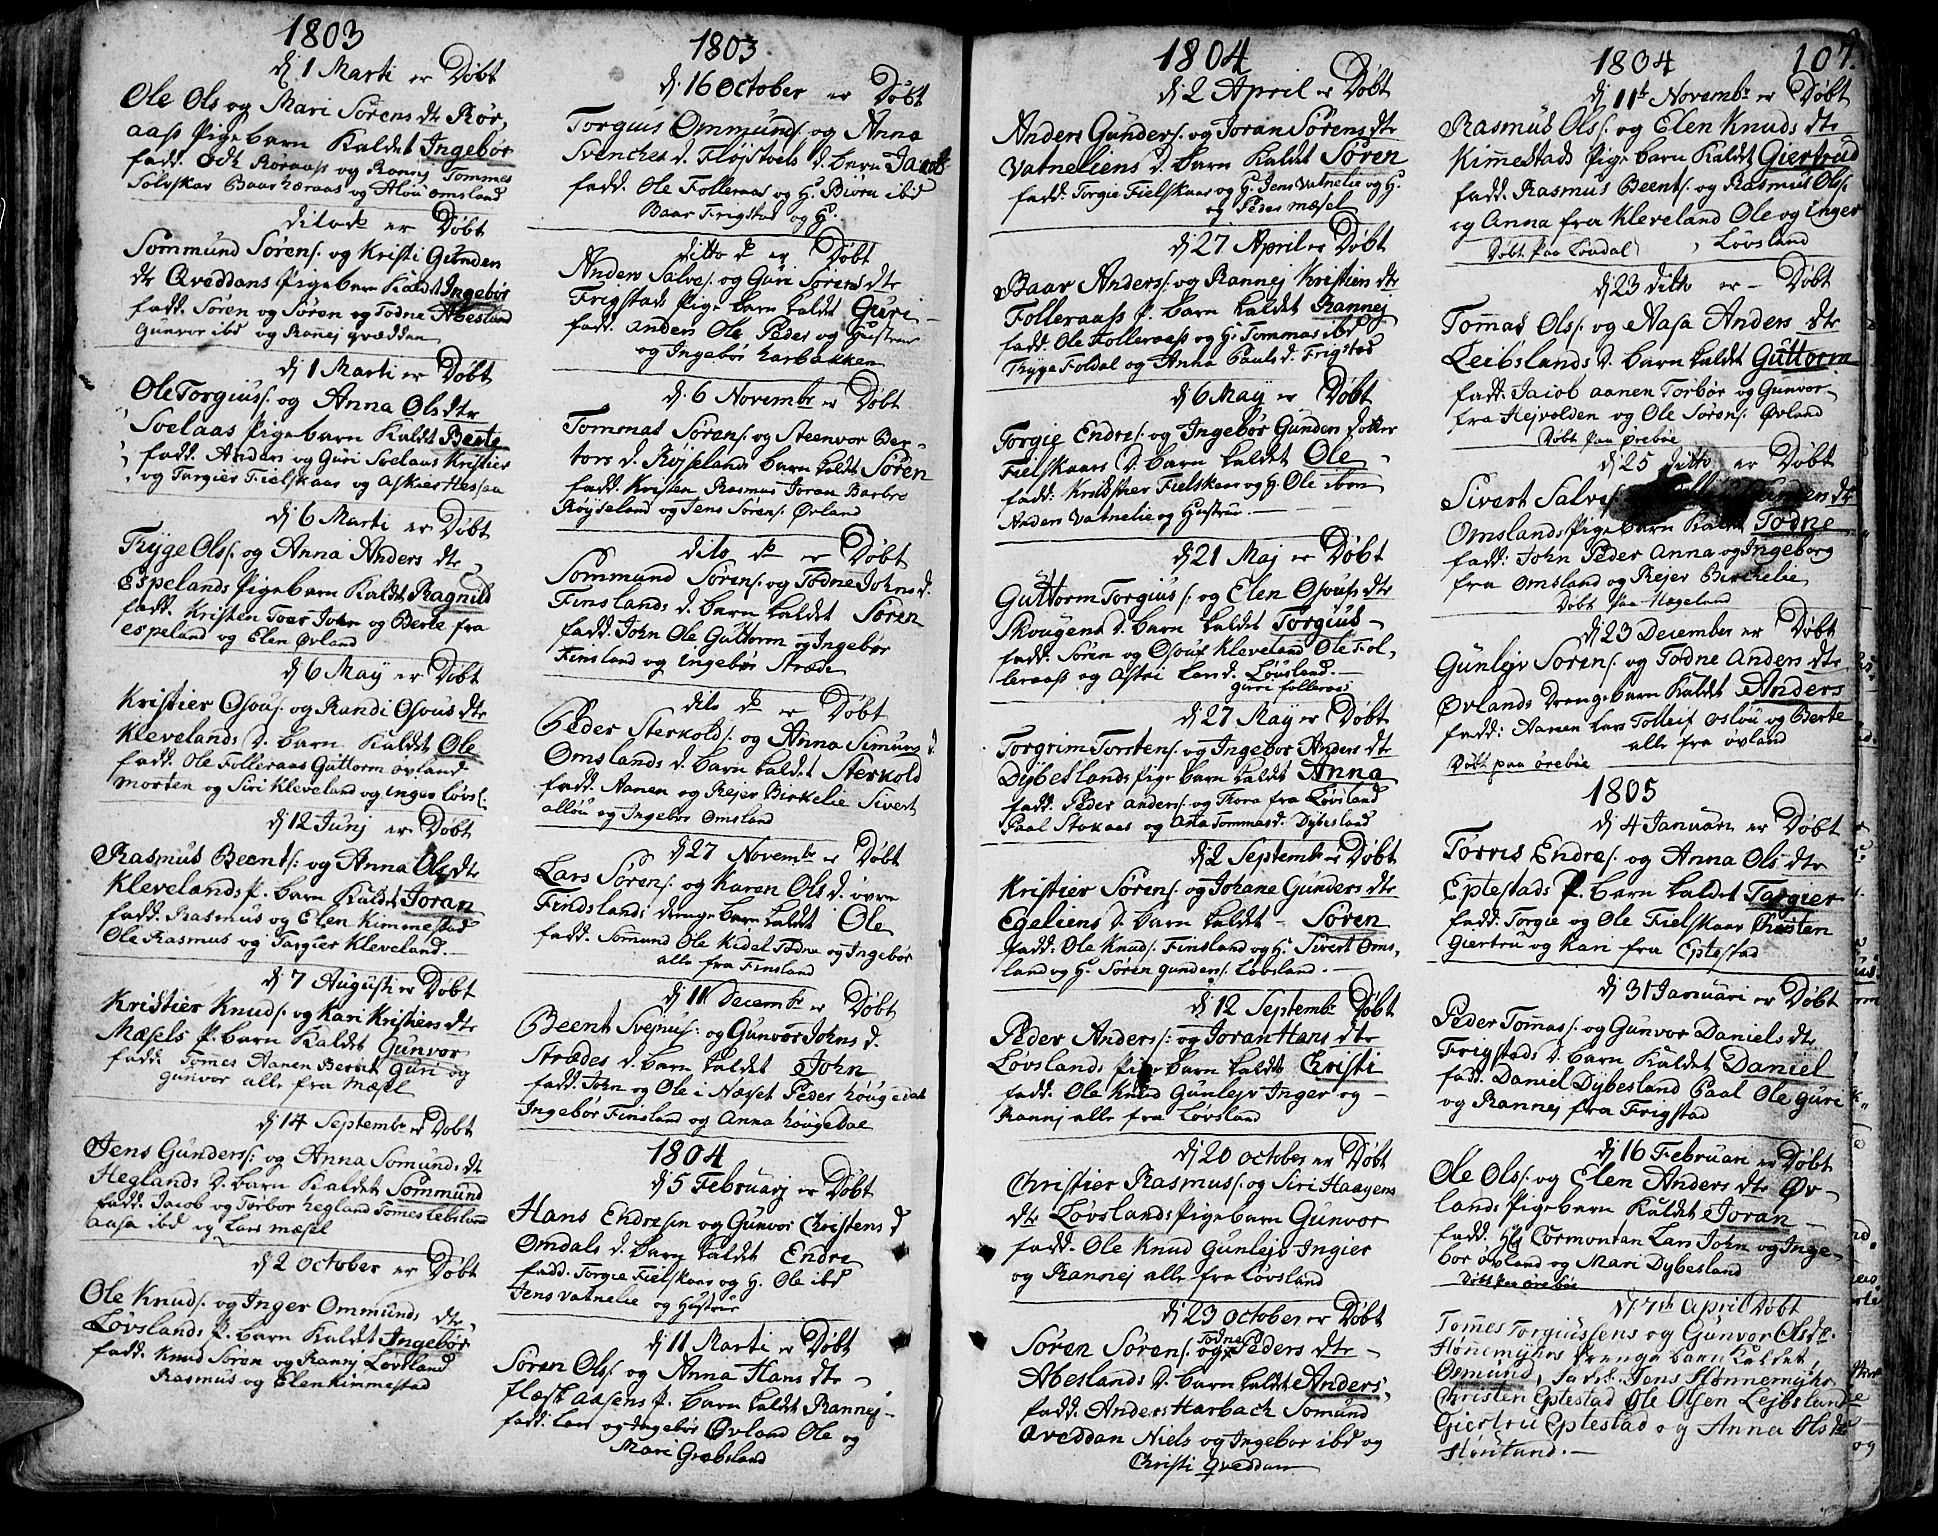 1803
dj 1 Marti er Døbt
Ole Ols og Mari Sørens dtr Rør,
aass Pige barn Kaldet Ingebor
fadd. Odt Røraass og Ranej Tommes
Solvskar Baar høraas og Aslou omsland
dito do er Døbt
Sommund Sørens: og Kristi Gunders
dtr Qveddans Pige barn Kaldt Ingebør
fadd. Søren og Søren og Todne Abesland
Gunvor ibd og Ranej qvæddan
dj 1 Marti er Døbt
Ole Torgius: og Anna Ols dtr
Soelaas Pige barn Kaldet Berte
fadd. Anders og Guri Soelaas Kristier
og Targier Fielskaas og Asker Hessaa
dj 6 Marti er Døbt
Tryge Ols: og Anna Anders dtr
Espelands Pigebarn Kaldt Ragnild
fadd. Kristen Toer John og Berte fra
espeland og Elen Øvland
dj 6 May er Døbt
Kristier Osous: og Randi Osous dtr
Klevelands d. barn Kaldet Ole
fadd. Ole Folleraas Guttorm øvland
Morten og Siri Kleveland og inger løvs:
dj 12 Junj er Døbt
Rasmus Beents: og Anna Ols dtr
Klevelands P. barn Kaldet Joran
fadd. Rasmus og Elen Kimmestad
Ole Rasmus og Targier Kleveland.
dj 7 Augusti er Døbt
Kristier Knuds: og Kari Kristiers dtr
Mæsels P. barn Kaldet Gunvor
fadd. Tommes Aanen Berent Guri og
gunvor alle fra Mæsel
dj 14 Septembr er Døbt
Jens Gunders: og Anna Somunds dtr
Heglands D. barn Kaldet Sommund
fadd. Jacob og Torbor hegland Tomes Lebsland
aasa ibd og Lars mæsel
dj 2 october er Døbt
Ole Knuds: og Inger Ommunds dtr
Løvslands P. barn Kaldet Ingebør
fadd. Knud Søren og Ranej Løvsland
Rasmus og Elen kimmestad
1803
dj. 16 October er Døbt
Torguis Ommunds: og Anna
Svenches d. Fløjstøels d. barn Jacob
fadd. Ole Folleraas og H. Biørn ibd
Baar Frigstad og H.
ditto do er Døbt
Anders Salves: og Guri Sørens dtr
Frigstads Pige barn kaldet Guri
fadd. Anders Ole Peder og Hustrue
og Ingebør harbakken
dj. 6 Novembr er Døbt
Tommas Sørens: og Steenvor Ber-
tors d. Røjselands barn kaldt Søren
fadd. Kristen Rasmus Joran Barbro
Røyseland og Jens Sørens: Øvland
dito do er Døbt
Sommund Sørens: og Todne Johns d.
Finslands d. barn kaldet Søren
fadd. John Ole Guttorm og Ingebør
Finsland og ingebør Stræde
dito do er Døbt
Peder Sterkolds: og Anna Simuns d
Omslands d. barn kaldet Sterkold
fadd. Aanen og Rejer Birkelie Sivert
allou og Ingebør omsland
dj 27 Novembr er Døbt
Lars Sørens: og Karen Ols d. øvre
Findslands drenge barn kaldet Ole
fadd. Sommund Ole Kidel Todne og Ingebør
alle fra Finsland
dj 11 Decembr er Døbt
Beent Svenus: og Gunvor Johns d.
Strædes d. barn kaldet John
fadd. John og Ole i Næset Peder høugedal
Ingebør Finsland og Anna høugedal
1804
dj 5 Februarj er Døbt
Hans Endresen og Gunvor Christens d
Omdals d. barn kaldet Endre
fadd. Torgie Fielskaas og H. Ole ibd
Jens Vatnelie og Hustrue
dj 11 Marti er Døbt
Søren Ols: og Anna Hans dtr
Hæst aasens P. barn kaldet Rannej
fadd. Lars og Ingebør Øvland Ole og
Mari Grebsland
1804
dj 2 April er Døbt
Anders Gunders: og Joran Sørens dtr
Vatneliens d. barn Kaldet Søren
fadd. Torgie Fielskaas og H. Jens Vatnelie og H.
og Peder Mæsel
dj 27 April er Døbt
Baar Anders: og Rannej Kristiens dtr
Folleraass P. barn kaldet Rannej
fadd. Ole Folleraass og H. Tommas ibd
Tryge Foldal og Anna Pauls d. Frigstad
dj 6 May er Døbt
Torgie Endres: og Ingebør Gunders dotter
Fielskaars D. barn kaldet Ole
fadd: Kristner Fielskaas og H. Ole ibm
Anders Vatnelie og Hustrue.
dj 21 Maj er Døbt
Guttorm Torgius: og Elen Osoufs dtr
Skougens d. barn kaldet Torgius
fadd: Søren og Osouf Kleveland Ole Fol,
leraass og Astri Lars d. Løvsland.
guri folleraas
dj 27 May er Døbt
Torgrim Torstens: og Ingebor Anders dtr
Dybeslands Pige barn kaldet Anna
fadd: Peder anders: og Thora fra Løvsland
Paal Stokaas og Asta Tommas d. Dybesland
dj 2 Septembr er Døbt
Kristier Sørens: og Johane Gunders dtr
Egeliens d. barn kaldet Søren
fadd: Ole Knuds: Finsland og H. Sivert Oms,
land og H. Søren gunders: Løvsland.
dj 12 Septembr Døbt
Peder Anders: og Joran Hans dtr
Løvslands Pige barn kaldt Christi
fadd. Ole Knud Gunlejv Inger og
Rannej alle fra Løvsland
dj 20 october er Døbt
Christier Rasmus: og Siri Haagens
dtr Løvslands Pige barn Gunvor
fadd. Ole Knud Gunlejv Ingier
og Rannej alle fra Løvsland
dj 23 october er Døbt
Søren Sørens: og Todne Peders dtr
Abeslands D. barn kaldet Anders
fadd. Anders Harbach Somund
Qveddan Niels og Ingebor ibd og
Christi Qveddan
1804
107.
dj 11te Novembr er Døbt
Rasmus Ols: og Elen Knuds dtr
Kimestads Pige barn Kaldet Giertrud
fadd. Rasmus Beents: og Rasmus Ols:
og Anna fra Kleveland Ole og inger
Døbt paa Løudal Løvsland
dj 23 ditto er Døbt
Tommas Ols: og Aasa Anders dtr
Leibslands D. barn kaldet Guttorm
fadd. Jacob aanen Torbør og Gunvor
fra Hejvolden og Ole Sørens: Øvland
Døbt paa ørebøe
dj 25 ditto er Døbt
Sivert Salves: Gunders dtr
Omslands Pige barn Kaldt Todne
fadd: John Peder Anna og Ingeborg
fra Omsland og Rejer Birkelie
Døbt paa Nægeland
dj 23 December er Døbt
Gunlejv Sørens: og Todne Anders dtr
Øvlands Drenge barn Kaldet Anders
fadd: Aanen Lars Tolleif oslou og Berte
alle fra øvland
Døbt paa ørebøe
1805
dj 4 Januari er Døbt
Torris Endres: og Anna Ols dtr
Eptestads P. barn kaldet Targier
fadd. Torgie og Ole Fielskaas Christen
Giertru og Kari fra Eptestad
dj 31 Januari er Døbt
Peder Tommas: og Gunvor Daniels dtr
Frigstads d. barn Kaldet Daniel
fadd. Daniel Dybesland Paal Ole guri
og Rannej fra Frigstad
dj 16 Februari er Døbt
Ole Ols: og Elen Anders dtr Øv-
lands Pige barn Kaldet Joran
fadd. Hs Cormontan Lars John og Inge-
bor øvland og Mari Dybesland
Døbt paa ørebøe
d 7de April Døbt
Tommes Torgiussens og Gunvor Ols dr.
Hønemyhrs Drenge barn Kaldet
Osmund, Fadd. Jens Hønnemyhr
Christen Eptestad Ole Olsen Lejbsland
Giertru Eptestad og Anna Ols dtr